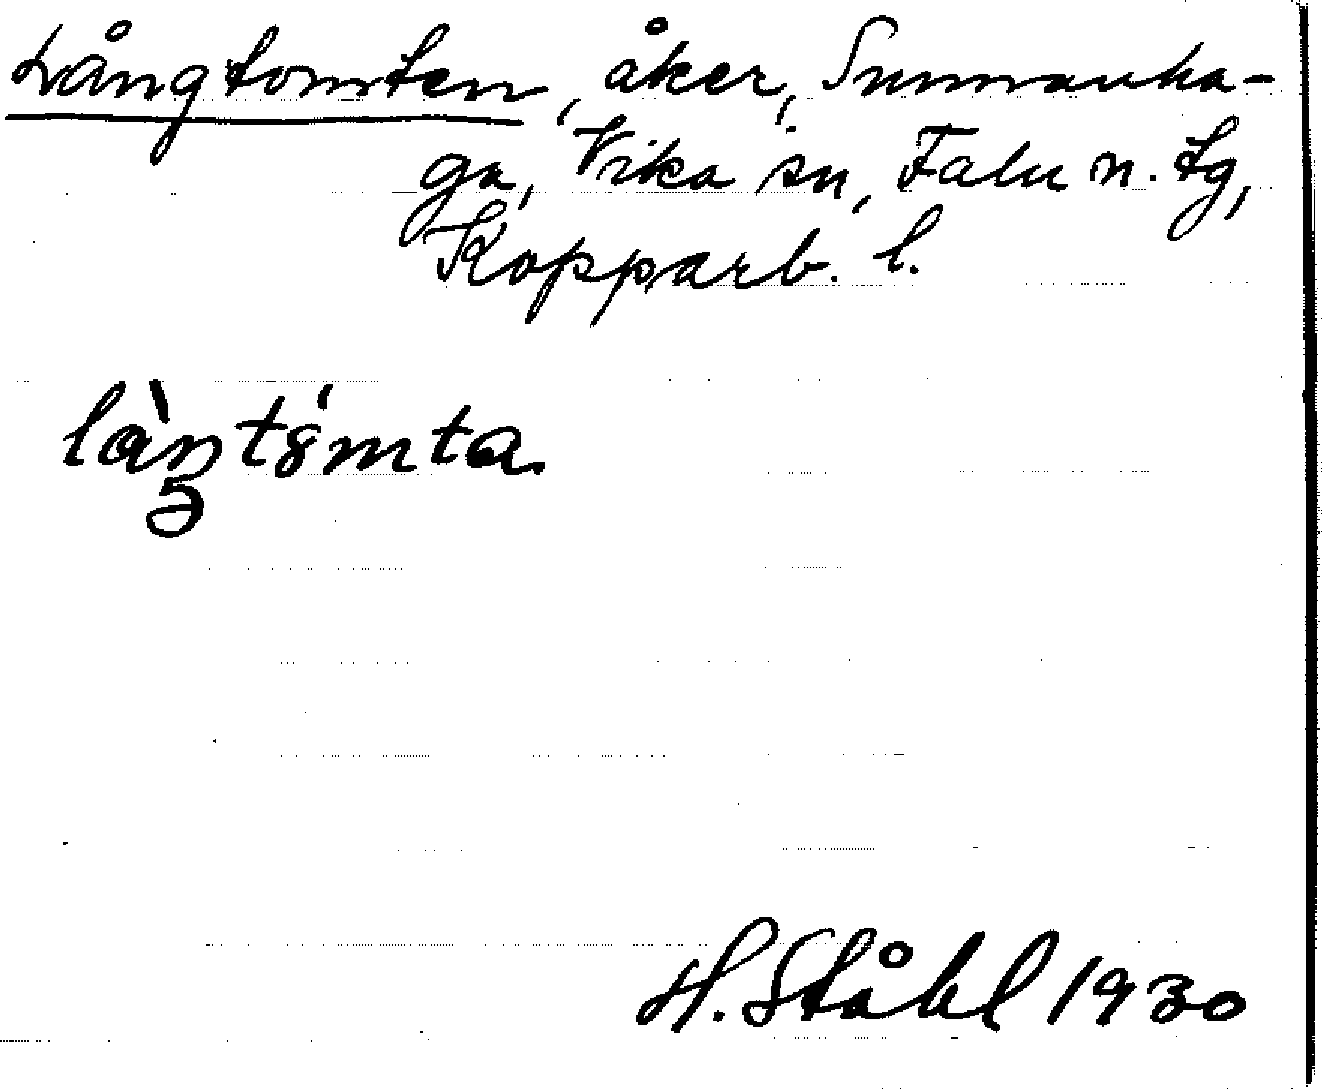 Långtomten, åker, Sunnanha-
ga, Vika sn, Falu n. tg,
Kopparb. l.
H. Ståhl 1930